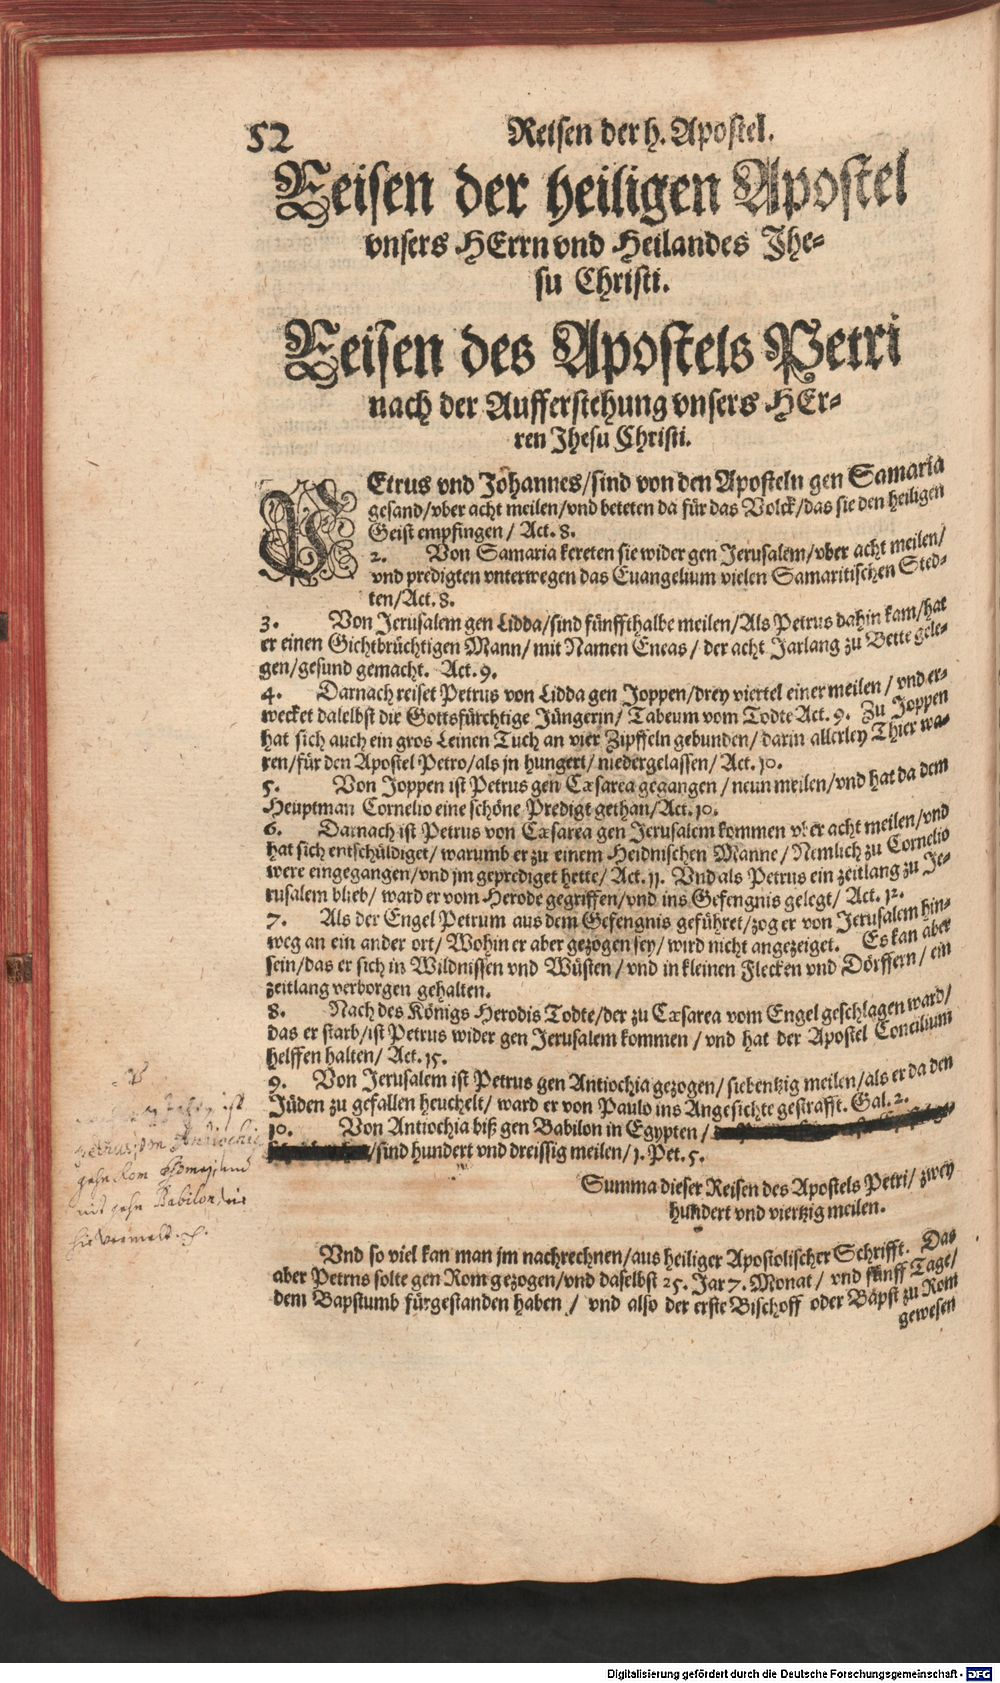 52 Reisen der h. Apostel.
Reisen der heiligen Apostel
vnsers HErrn vnd Heilandes Jhe-
su Christi.
Reisen des Apostels Petri
nach der Aufferstehung vnsers HEr-
ren Jhesu Christi.
PEtrus vnd Johannes/sind von den Aposteln gen Samaria
gesand/vber acht meilen/vnd beteten da für das Volck/das sie den heiligen
Geist empfingen/ Act. 8.
2. Von Samaria kereten sie wider gen Jerusalem/vber acht meilen/
vnd predigten vnterwegen das Euangelium vielen Samaritischen Sted-
ten/Act. 8.
3. Von Jerusalem gen Lidda/sind fünffthalbe meilen/Als Petrus dahin kam/hat
er einen Gichtbrüchtigen Mann/ mit Namen Eneas/ der acht Jarlang zu Bette gele-
gen/gesund gemacht. Act. 9.
4. Darnach reiset Petrus von Lidda gen Joppen/drey viertel einer meilen/ vnd er-
wecket daselbst die Gottsfürchtige Jüngerin/ Tabeum vom Todte Act. 9. Zu Joppen
hat sich auch ein gros Leinen Tuch an vier Zipffeln gebunden/ darin allerley Thier wa-
ren/für den Apostel Petro/als jn hungert/ niedergelassen/ Act. 10.
5. Von Joppen ist Petrus gen Cæsarea gegangen/ neun meilen/vnd hat da dem
Heuptman Cornelio eine schöne Predigt gethan/Act. 10.
6. Darnach ist Petrus von Cæsarea gen Jerusalem kommen vber acht meilen/vnd
hat sich entschüldiget/ warumb er zu einem Heidnischen Manne/ Nemlich zu Cornelio
were eingegangen/vnd jm geprediget hette/ Act. 11. Vnd als Petrus ein zeitlang zu Je-
rusalem blieb/ ward er vom Herode gegriffen/vnd ins Gefengnis gelegt/ Act. 12.
7. Als der Engel Petrum aus dem Gefengnis geführet/zog er von Jerusalem hin-
weg an ein ander ort/ Wohin er aber gezogen sey/ wird nicht angezeiget. Es kan aber
sein/das er sich in Wildnissen vnd Wüsten/ vnd in kleinen Flecken vnd Dörffern/ ein
zeitlang verborgen gehalten.
8. Nach des Königs Herodis Todte/der zu Cæsarea vom Engel geschlagen ward/
das er starb/ist Petrus wider gen Jerusalem kommen/ vnd hat der Apostel Concilium
helffen halten/ Act. 15.
9. Von Jerusalem ist Petrus gen Antiochia gezogen/ siebentzig meilen/als er da den
Jüden zu gefallen heuchelt/ ward er von Paulo ins Angesichte gestrafft. Gal. 2.
10. Von Antiochia biß gen Babilon in Egypten/
/sind hundert vnd dreissig meilen/1. Pet. 5.
ist
Petrus von Antiochia
gehn Rom
gehn Babilon
hie vermelt
Summa dieser Reisen des Apostels Petri/ zwey
hundert vnd viertzig meilen.
Vnd so viel kan man jm nachrechnen/aus heiliger Apostolischer Schrifft. Das
aber Petrus solte gen Rom gezogen/vnd daselbst 25. Jar 7. Monat/ vnd fünff Tage/
dem Bapstumb fürgestanden haben/ vnd also der erste Bischoff oder Bapst zu Rom
gewesen
Digitalisierung gefördert durch die Deutsche Forschungsgemeinschaft - DFG